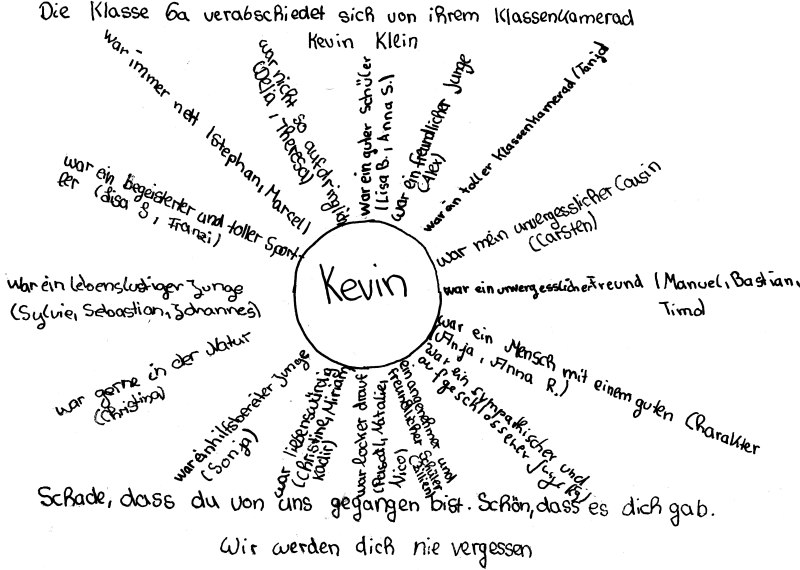 Die Klasse 6a verabschiedet sich von ihrem Klassenkamerad
Kevin Klein
war immer nett (Stephan, Marcel)
war nicht so aufdringlich
(Delia, Theresa)
war ein guter Schüler
(Lisa B., Anna S.)
war ein freundlicher Junge
(Alex)
war ein toller Klassenkamerad (Tanja)
war mein unvergesslicher Cousin
(Carsten)
war ein unvergesslicher Freund (Manuel, Bastian,
Timo)
war ein Mensch mit einem guten Charakter
(Anja, Anna R.)
war ein sympathischer und
aufgeschlossener Junge
ein angenehmer und
freundlicher Schüler
war locker drauf
(Pascal, Natalie,
Nico)
war liebenswürdig
(Christine, Miriam,
Kadir)
war ein hilfsbereiter Junge
(Sonja)
war gerne in der Natur
(Christina)
war ein lebenslustiger Junge
(Sylvie, Sebastian, Johannes)
war ein begeisterter und toller Sport-
ler (Lisa S., Franzi)
Kevin
Schade, dass du von uns gegangen bist. Schön, dass es dich gab.
Wir werden dich nie vergessen